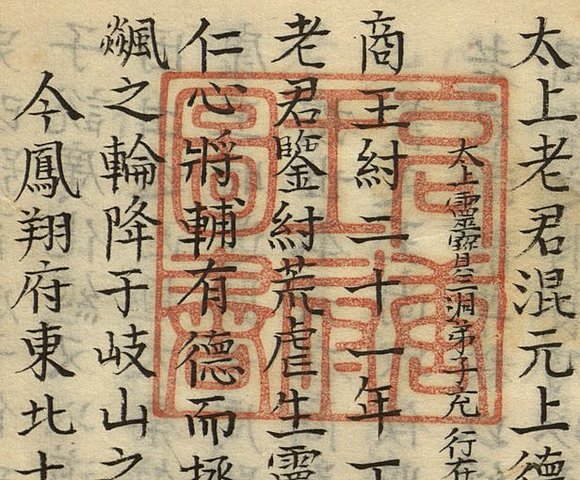 太上老君混元上德
太上靈寶三洞弟子充 行在
商王紂二十一年丁
老君鑒紂荒虐生靈
仁心將輔有德而拯
飆之輪降于岐山之
今鳳翔府東北十